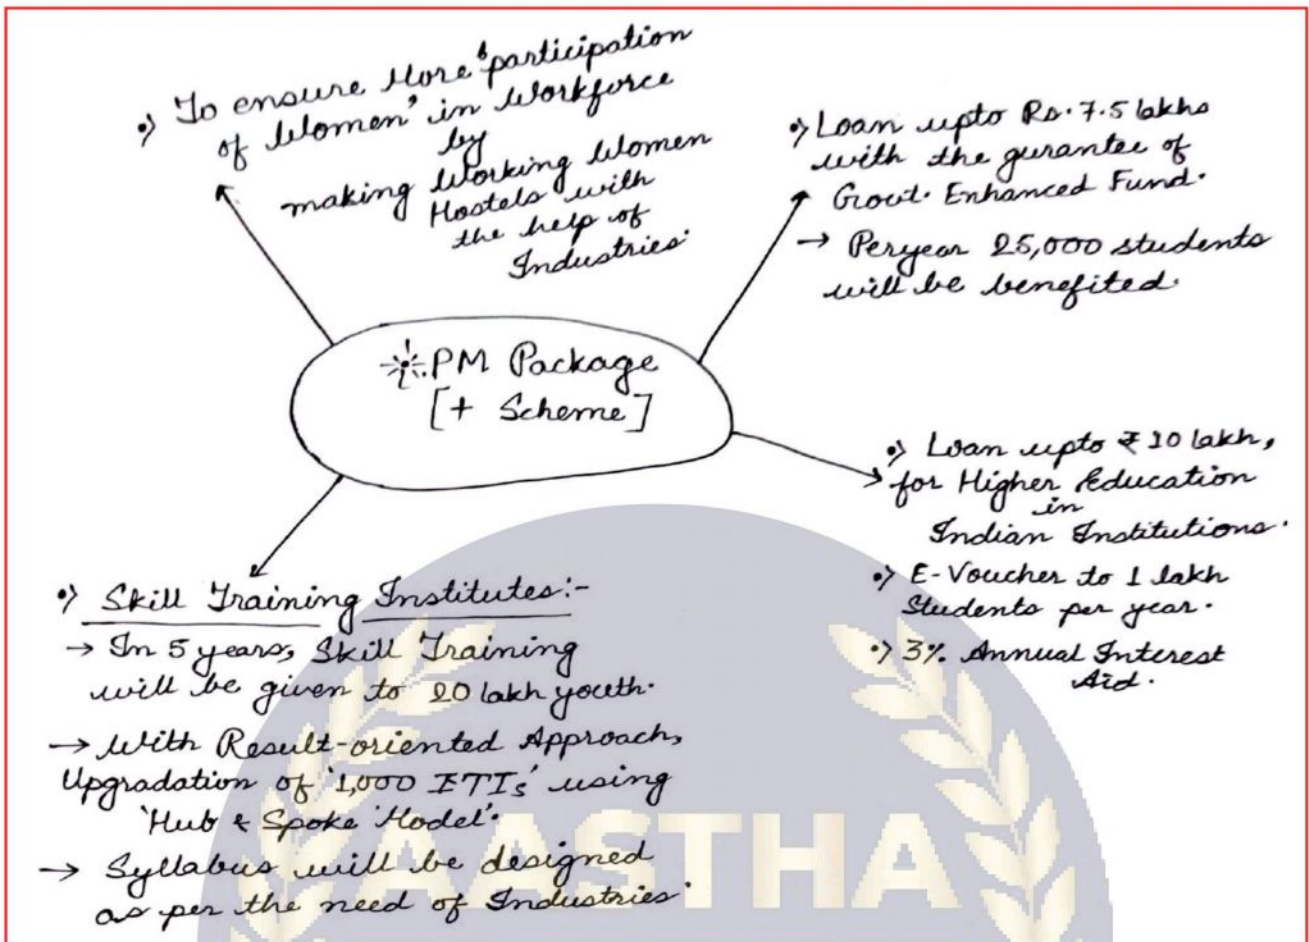 •) To ensure More 'participation
of Women' in Workforce
by
making Working Women
Hostels with
the help of
Industries.
•) Loan upto Rs. 7.5 lakhs
with the gurantee of
Govt. Enhanced Fund.
→ Peryear 25,000 students
will be benefited.
PM Package
[+ Scheme]
•) Loan upto ₹ 10 lakh,
for Higher Education
in
Indian Institutions.
•) E-Voucher to 1 lakh
Students per year.
•) 3% Annual Interest
Aid.
•) Skill Training Institutes:-
→ In 5 years, Skill Training
will be given to 20 lakh youth.
→ With Result-oriented Approach,
Upgradation of '1,000 ITIs' using
'Hub & Spoke Model'.
→ Syllabus will be designed
as per the need of Industries.
AASTHA